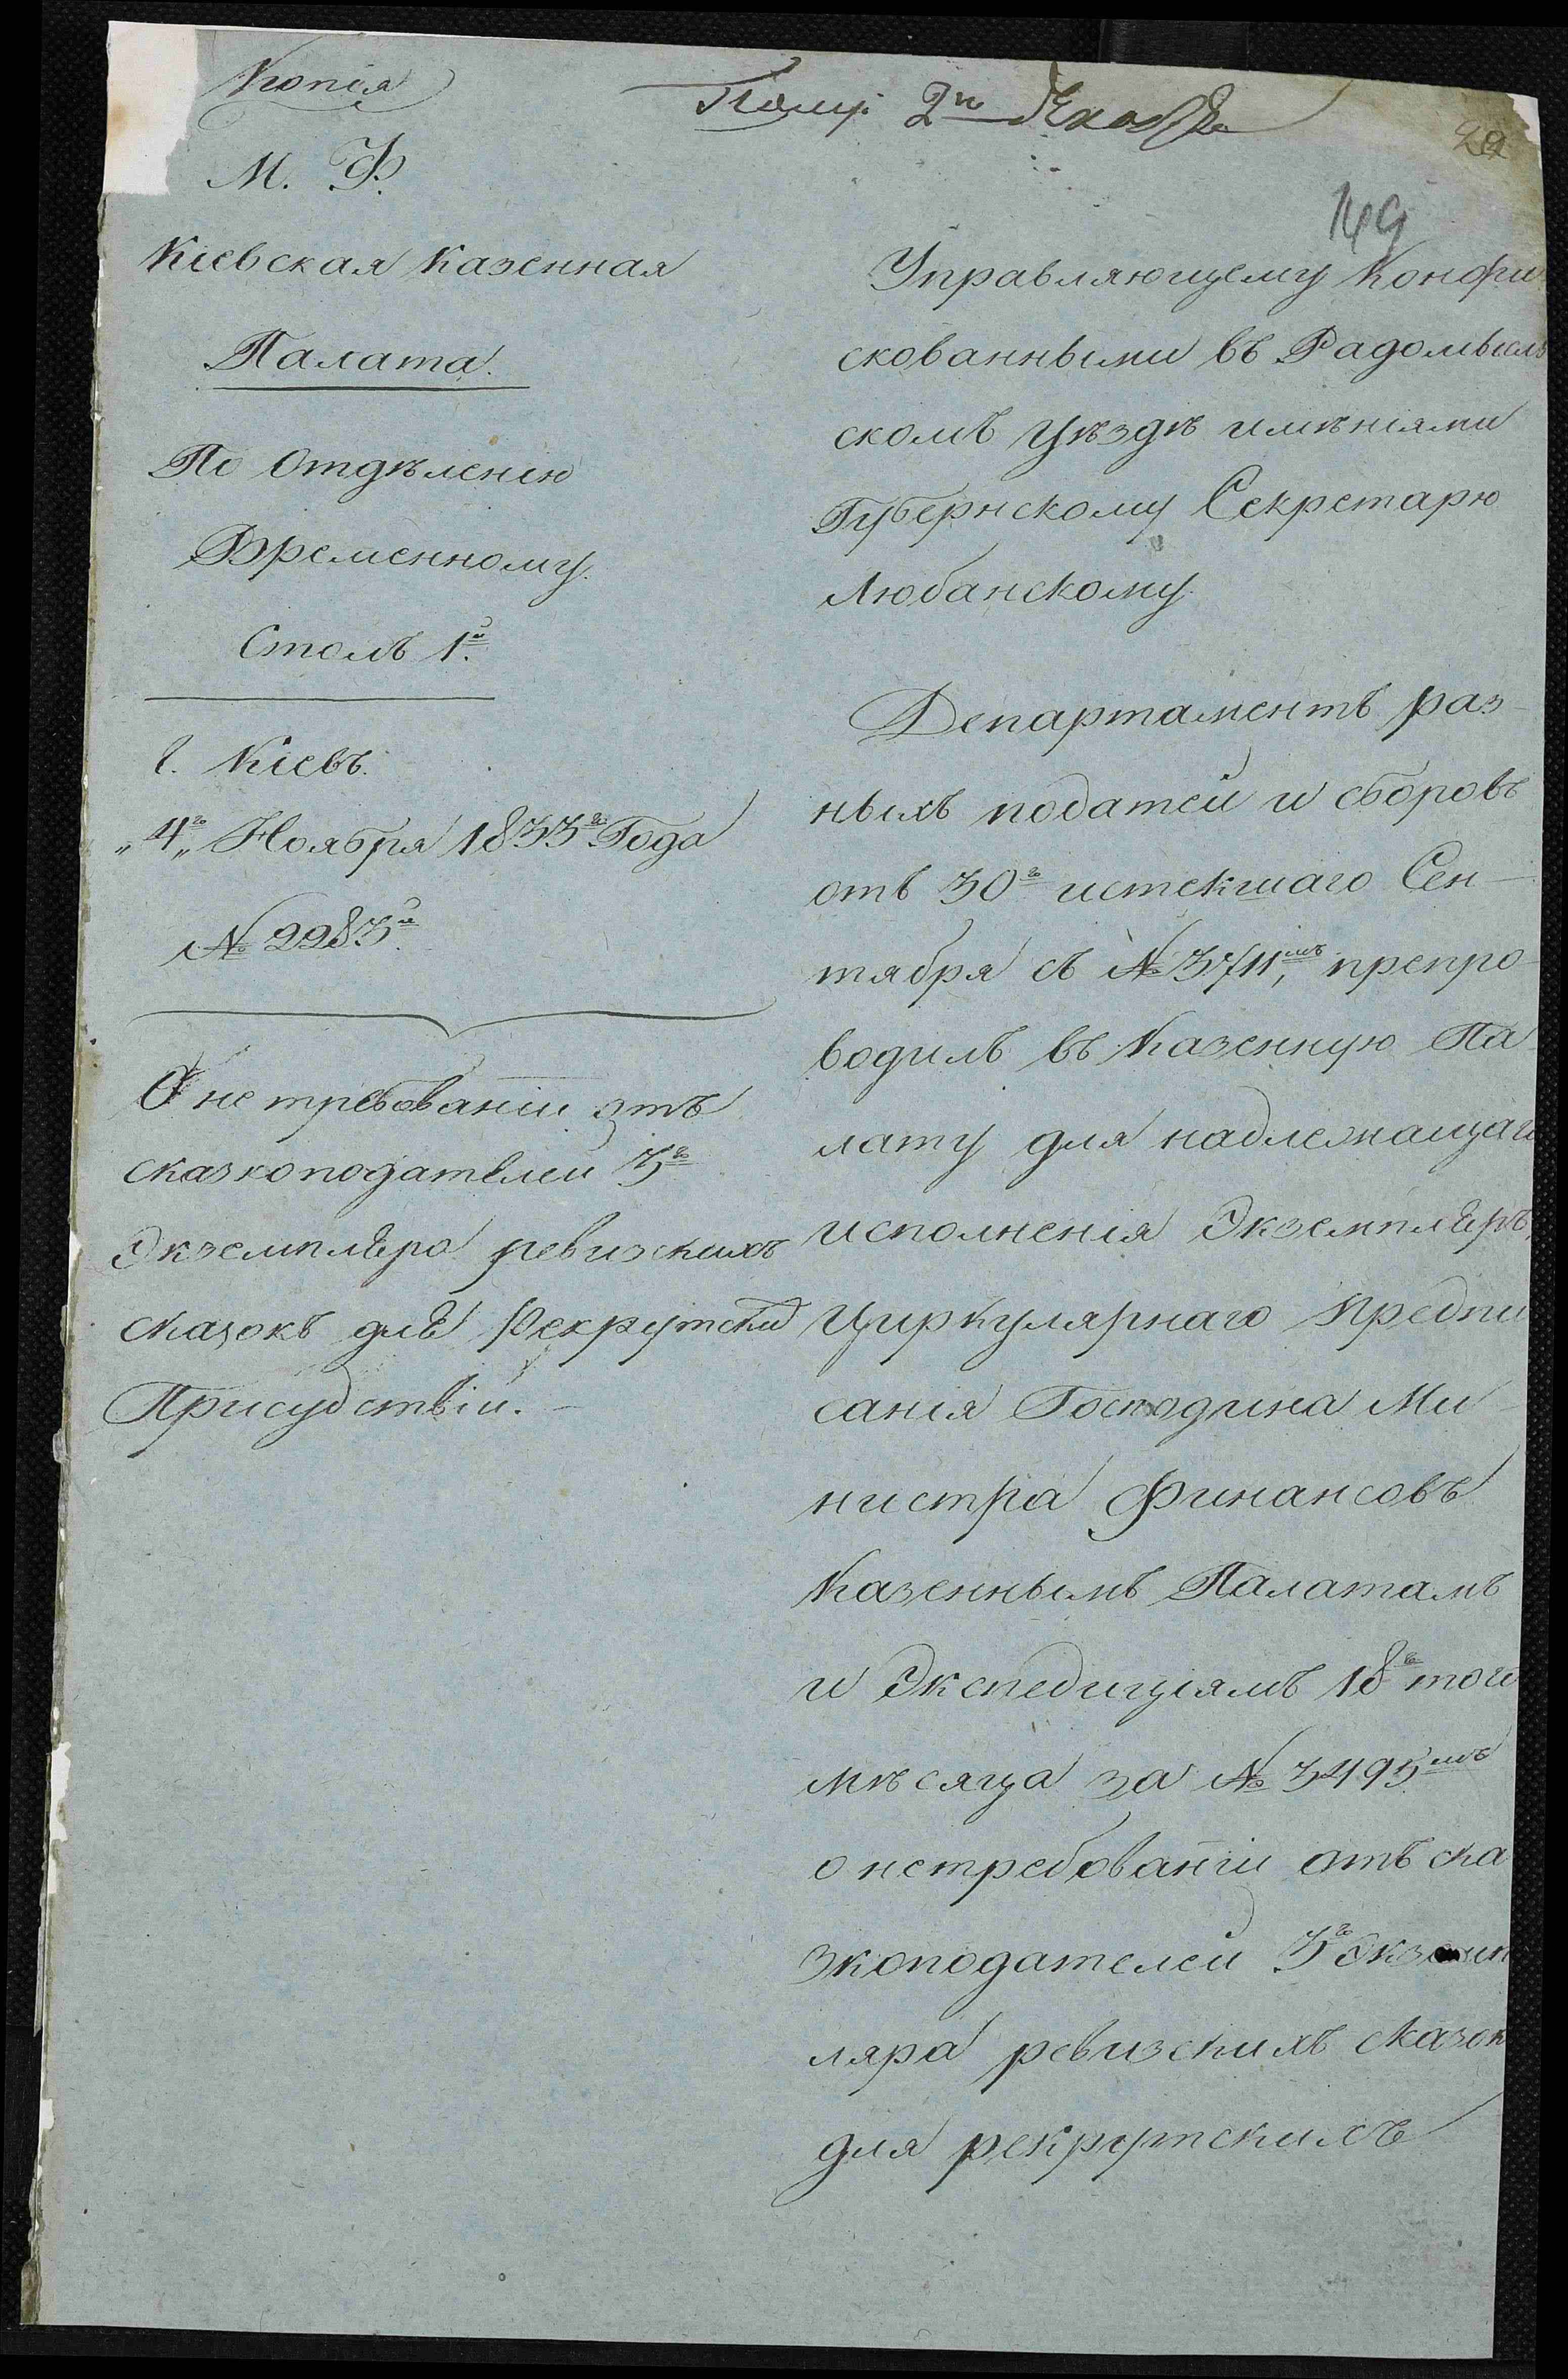 Копія
Полу: 2го Декабр
149
М. Ф.
Кіевская Казенная
Палата.
По Отдѣленію
Временному.
Столъ 1й
г. Кіевъ.
„4го„ Ноября 1833го Года
№ 2283й
О не требованіи отъ
сказкоподателей 3го
Экземпляра ревизскихъ
сказокъ для Рекрутски
Присудствій.
Управляющему Конфи
скованными въ Радомысль
скомъ уѣздѣ имѣніями
Губернскому Секретарю
Любанскому.
Департаментъ раз-
ныхъ податей и сборовъ
отъ 30го истекшаго Сен-
тября съ № 3711мъ, препро-
водилъ въ Казенную Па
лату для надлежащаго
исполненія Экземпляръ
Циркулярнаго Предпи
санія Господина Ми-
нистра Финансовъ
Казеннымъ Палатамъ
и Экспедиціямъ 18го того
мѣсяца за № 3495мъ
о нетребованіи отъ ска
зкоподателей 3го Экземп
ляра ревизскихъ сказок
для рекрутскихъ